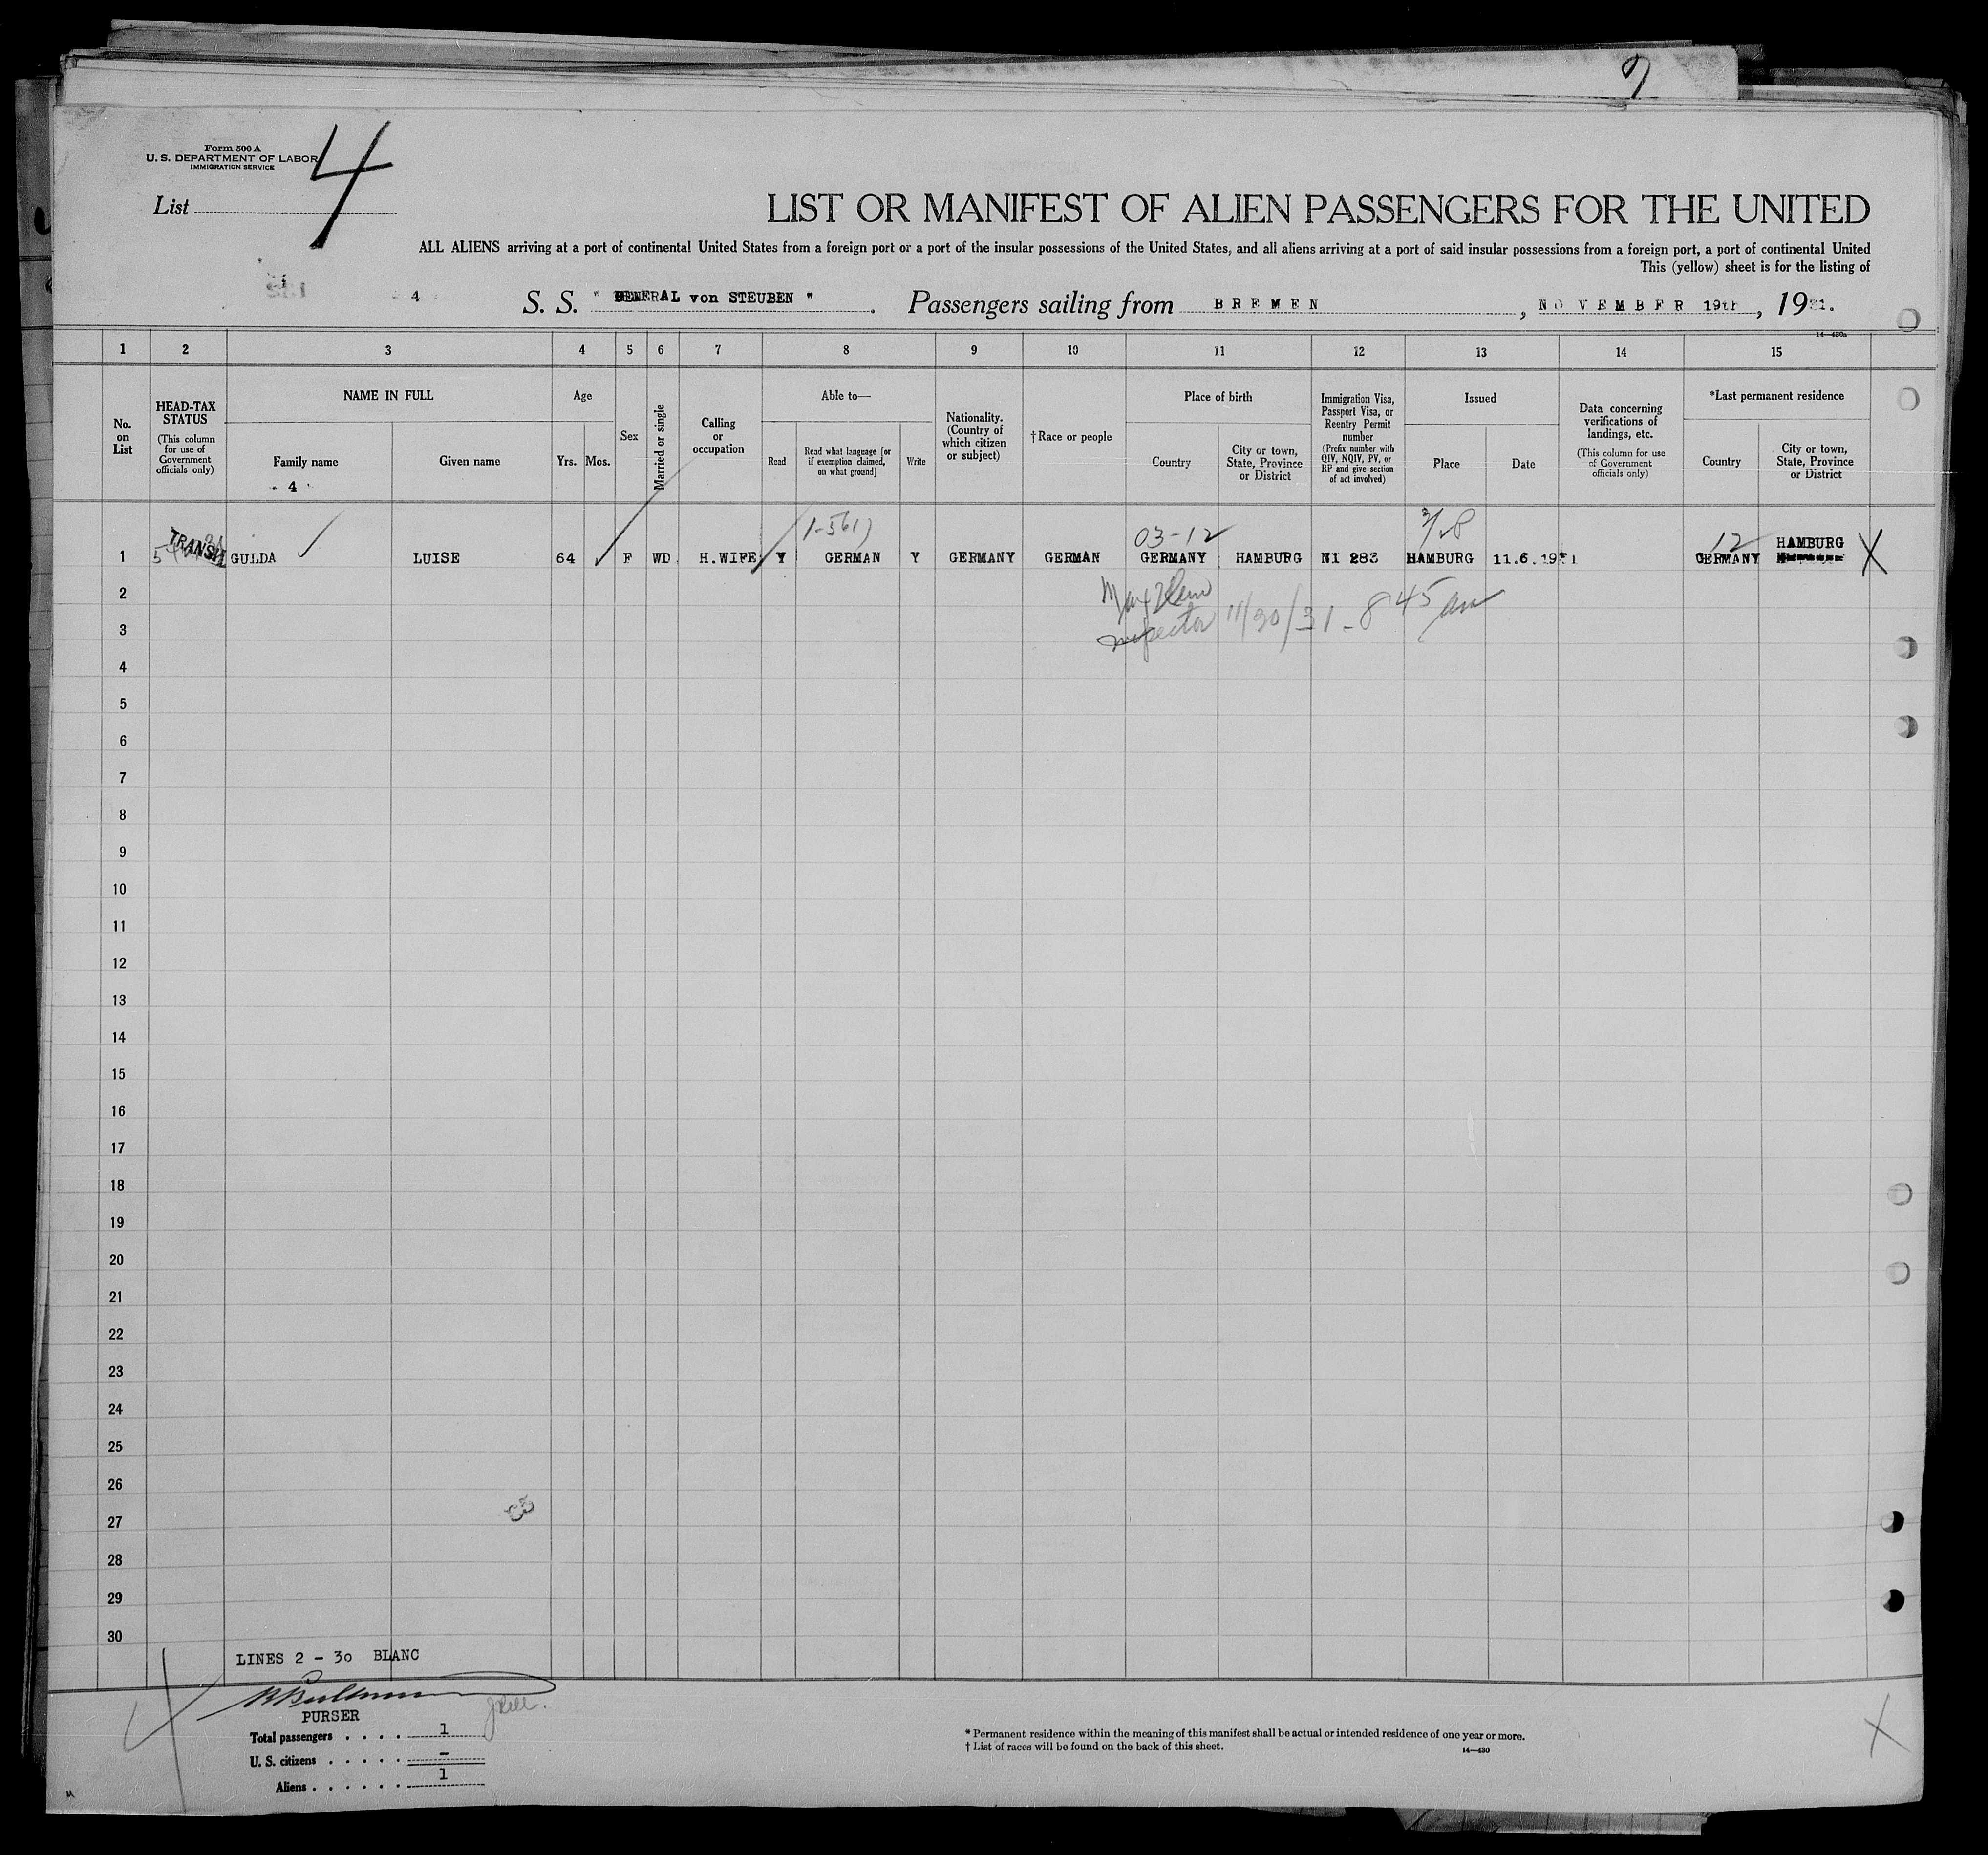 Form 500 A
U. S. DEPARTMENT OF LABOR
IMMIGRATION SERVICE
List 4
LIST OR MANIFEST OF ALIEN PASSENGERS FOR THE UNITED
ALL ALIENS arriving at a port of continental United States from a foreign port or a port of the insular possessions of the United States, and all aliens arriving at a port of said insular possessions from a foreign port, a port of continental United
This (yellow) sheet is for the listing of
4 S. S. " GENERAL von STEUBEN " . Passengers sailing from BREMEN , NOVEMBER 19th , 1931.
14—430a
1 2 3 4 5 6 7 8 9 10 11 12 13 14 15
No. on List
HEAD-TAX STATUS (This column for use of Government officials only)
NAME IN FULL
Family name
Given name
4
Age
Yrs. Mos.
Sex
Married or single
Calling or occupation
Able to—
Read
Read what language [or if exemption claimed, on what ground]
Write
Nationality. (Country of which citizen or subject)
† Race or people
Place of birth
Country
City or town, State, Province or District
Immigration Visa, Passport Visa, or Reentry Permit number (Prefix number with QIV, NQIV, PV, or RP and give section of act involved)
Issued
Place
Date
Data concerning verifications of landings, etc. (This column for use of Government officials only)
*Last permanent residence
Country
City or town, State, Province or District
03-12
12 HAMBURG
1 TRANSIT GULDA LUISE 64 F WD H.WIFE Y GERMAN Y GERMANY GERMAN GERMANY HAMBURG NI 283 HAMBURG 11.6.1931 GERMANY X
2
3 inspector 11/30/31 - 8 45 am
4
5
6
7
8
9
10
11
12
13
14
15
16
17
18
19
20
21
22
23
24
25
26
27
28
29
30
LINES 2 - 30 BLANC
PURSER
Total passengers . . . . 1
U. S. citizens . . . . . –
Aliens . . . . . . 1
* Permanent residence within the meaning of this manifest shall be actual or intended residence of one year or more.
† List of races will be found on the back of this sheet.
14—430
X